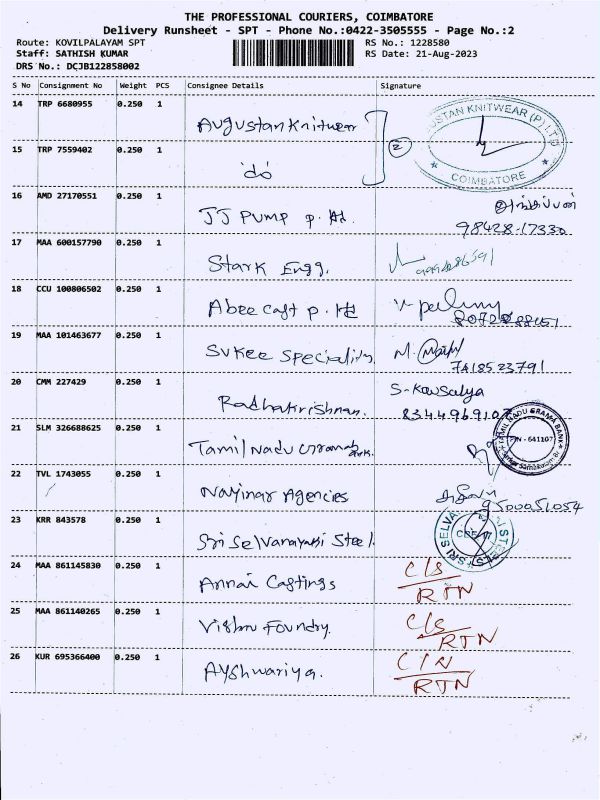 THE PROFESSIONAL COURIERS, COIMBATORE
Delivery Runsheet - SPT - Phone No.:0422-3505555 - Page No.:2
Route: KOVILPALAYAM SPT RS No.: 1228580
Staff: SATHISH KUMAR RS Date: 21-Aug-2023
DRS No.: DCJB122858002
S No Consignment No Weight PCS Consignee Details Signature
14 TRP 6680955 0.250 1 Augustan Knitwear
KNITWEAR (P) LTD
COIMBATORE
15 TRP 7559402 0.250 1 do 2
16 AMD 27170551 0.250 1 JJ PUMP P. Ltd.
98428-17330
17 MAA 600157790 0.250 1 Stark Engg.
18 CCU 100806502 0.250 1 Abee Cast P. Ltd
19 MAA 101463677 0.250 1 Sukee Speciality. M.
7418523791
20 CMM 227429 0.250 1 Radhakrishnan. S-Kousalya
8344969107
21 SLM 326688625 0.250 1 Tamil Nadu Grama Bank.
TAMIL NADU GRAMA BANK
PIN - 641107
22 TVL 1743055 0.250 1 Nayinar Agencies
9500051054
23 KRR 843578 0.250 1 Sri Selvanayaki Steel.
SRI SELVA
24 MAA 861145830 0.250 1 Annai Castings C/S
RTN
25 MAA 861140265 0.250 1 Vishnu Foundry. C/S
RTN
26 KUR 695366400 0.250 1 Ayshwariya. C/N
RTN